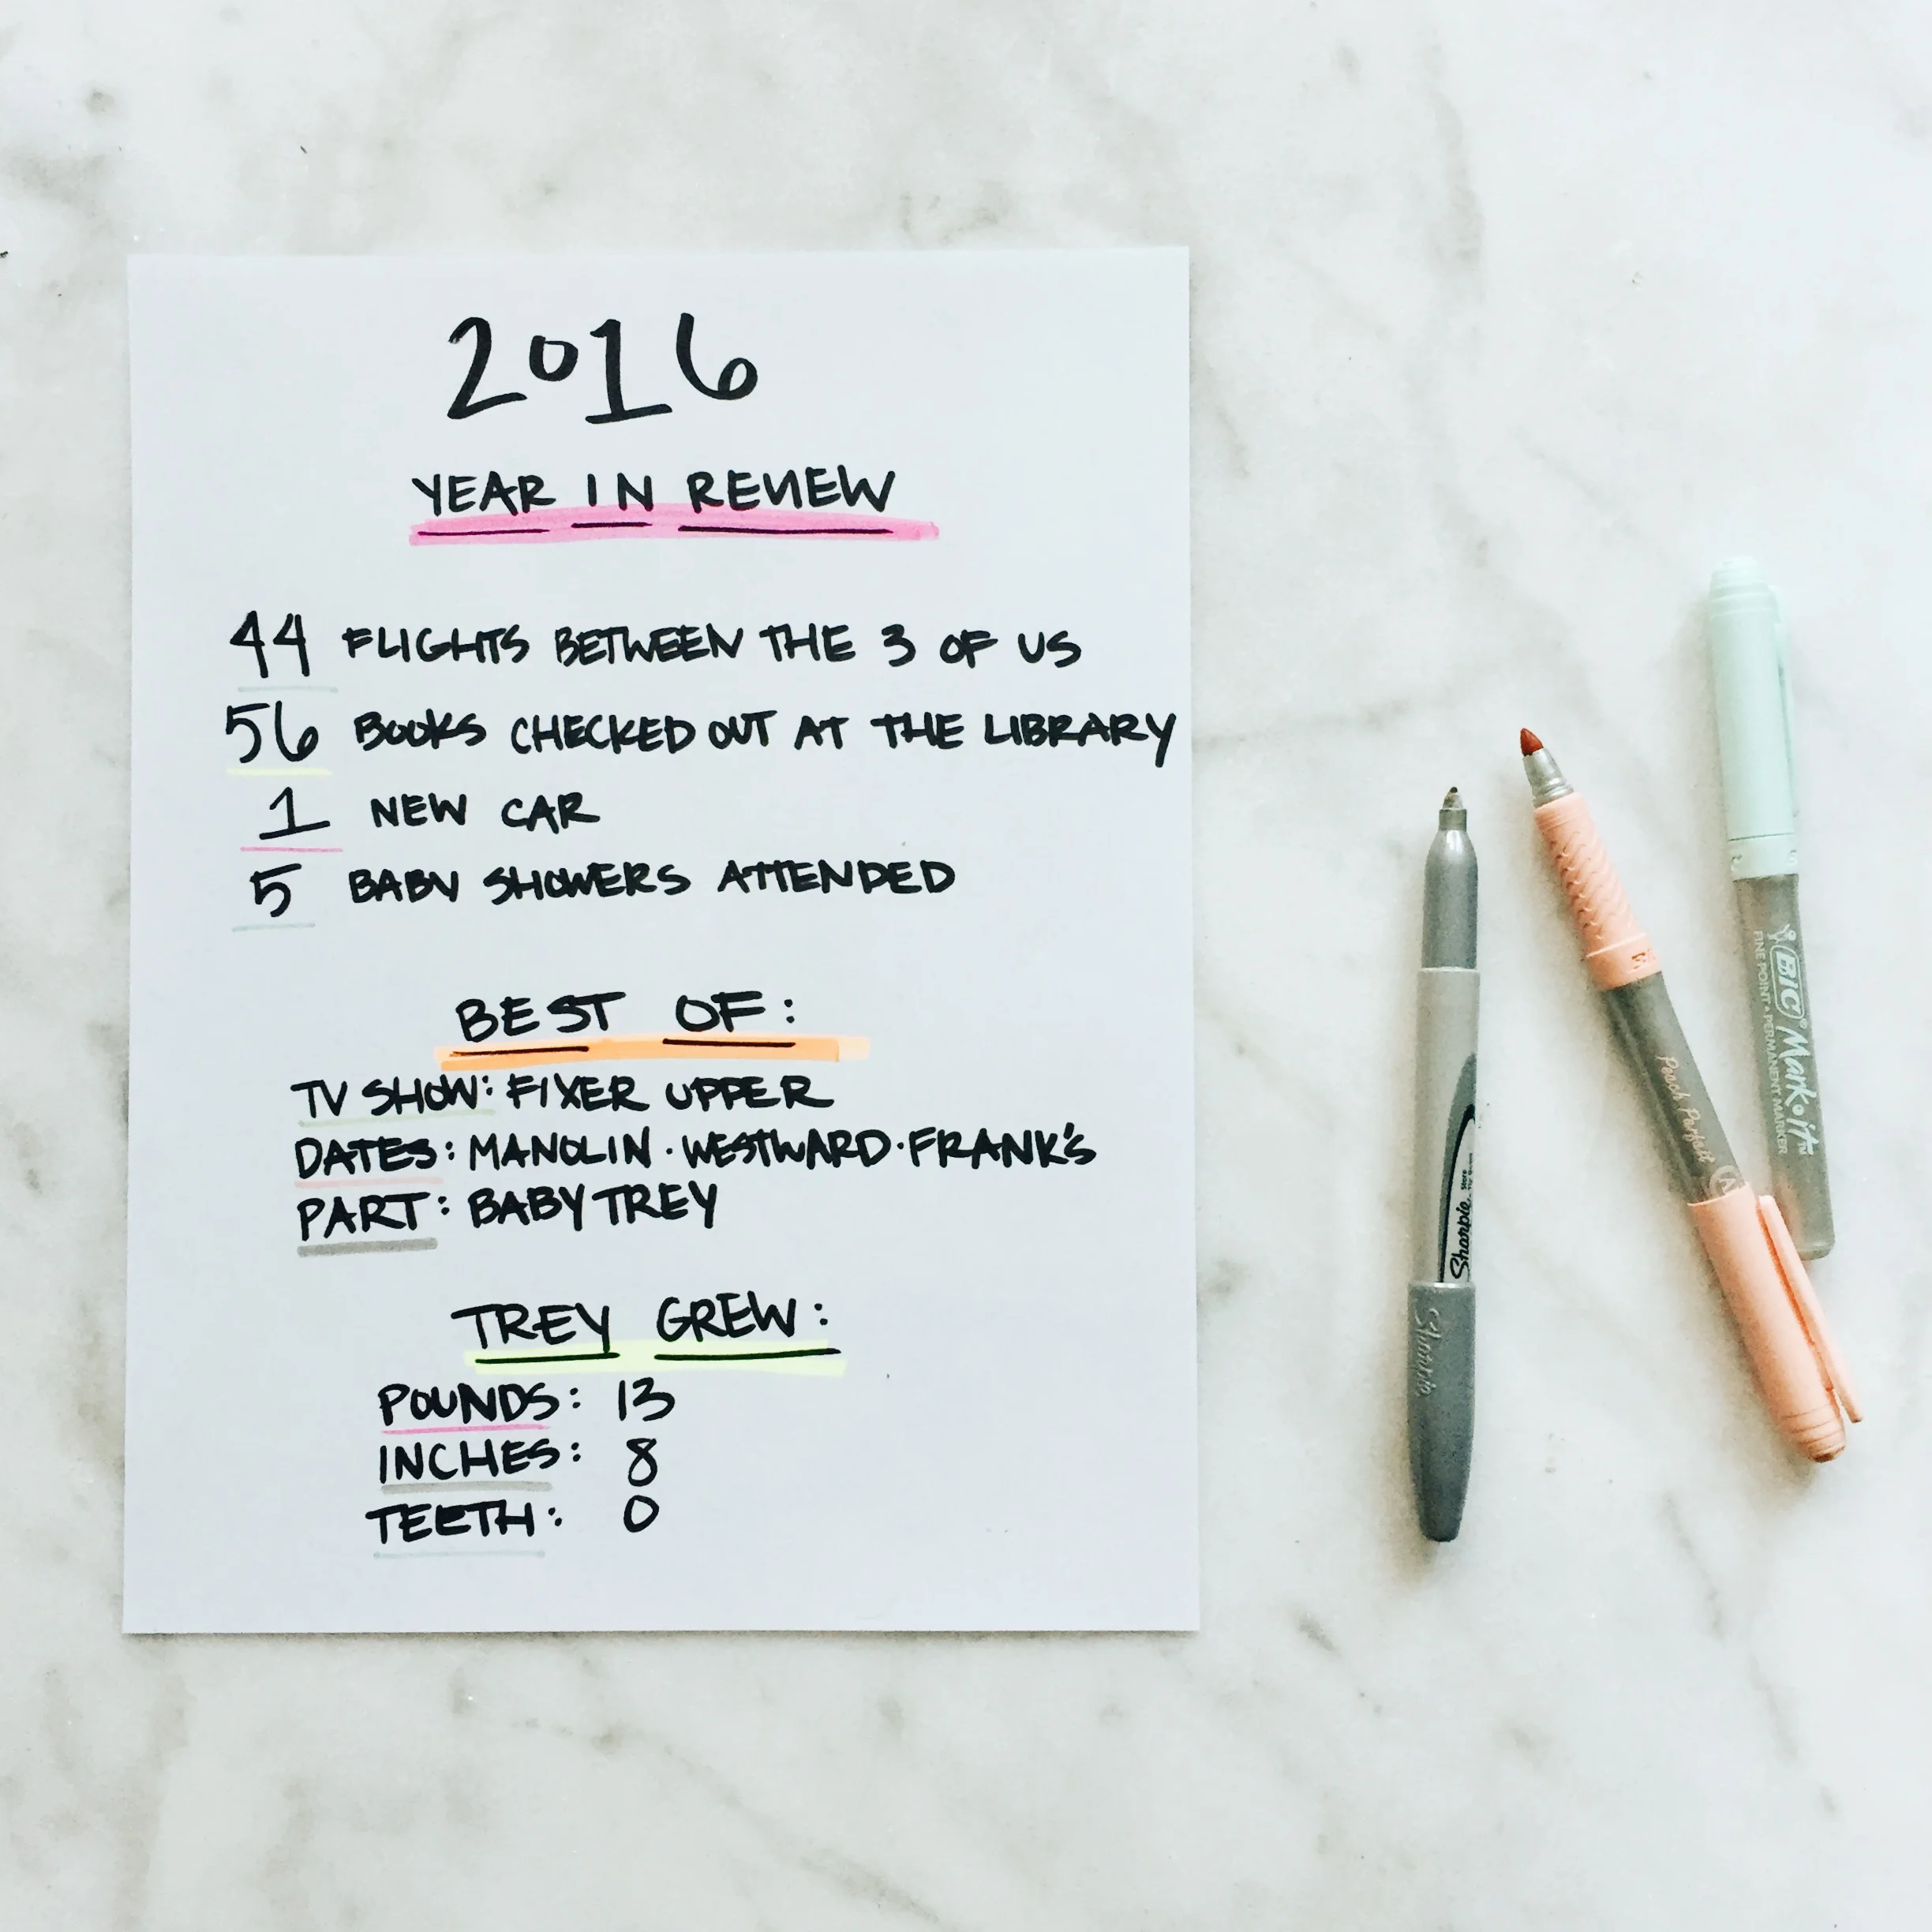 2016
YEAR IN REVIEW
44 FLIGHTS BETWEEN THE 3 OF US
56 BOOKS CHECKED OUT AT THE LIBRARY
1 NEW CAR
5 BABY SHOWERS ATTENDED
BEST OF:
TV SHOW: FIXER UPPER
DATES: MANOLIN · WESTWARD · FRANK'S
PART: BABY TREY
TREY GREW:
POUNDS: 13
INCHES: 8
TEETH: 0
Sharpie
Sharpie
Peach Perfait
BIC® Mark·it™
FINE POINT • PERMANENT MARKER